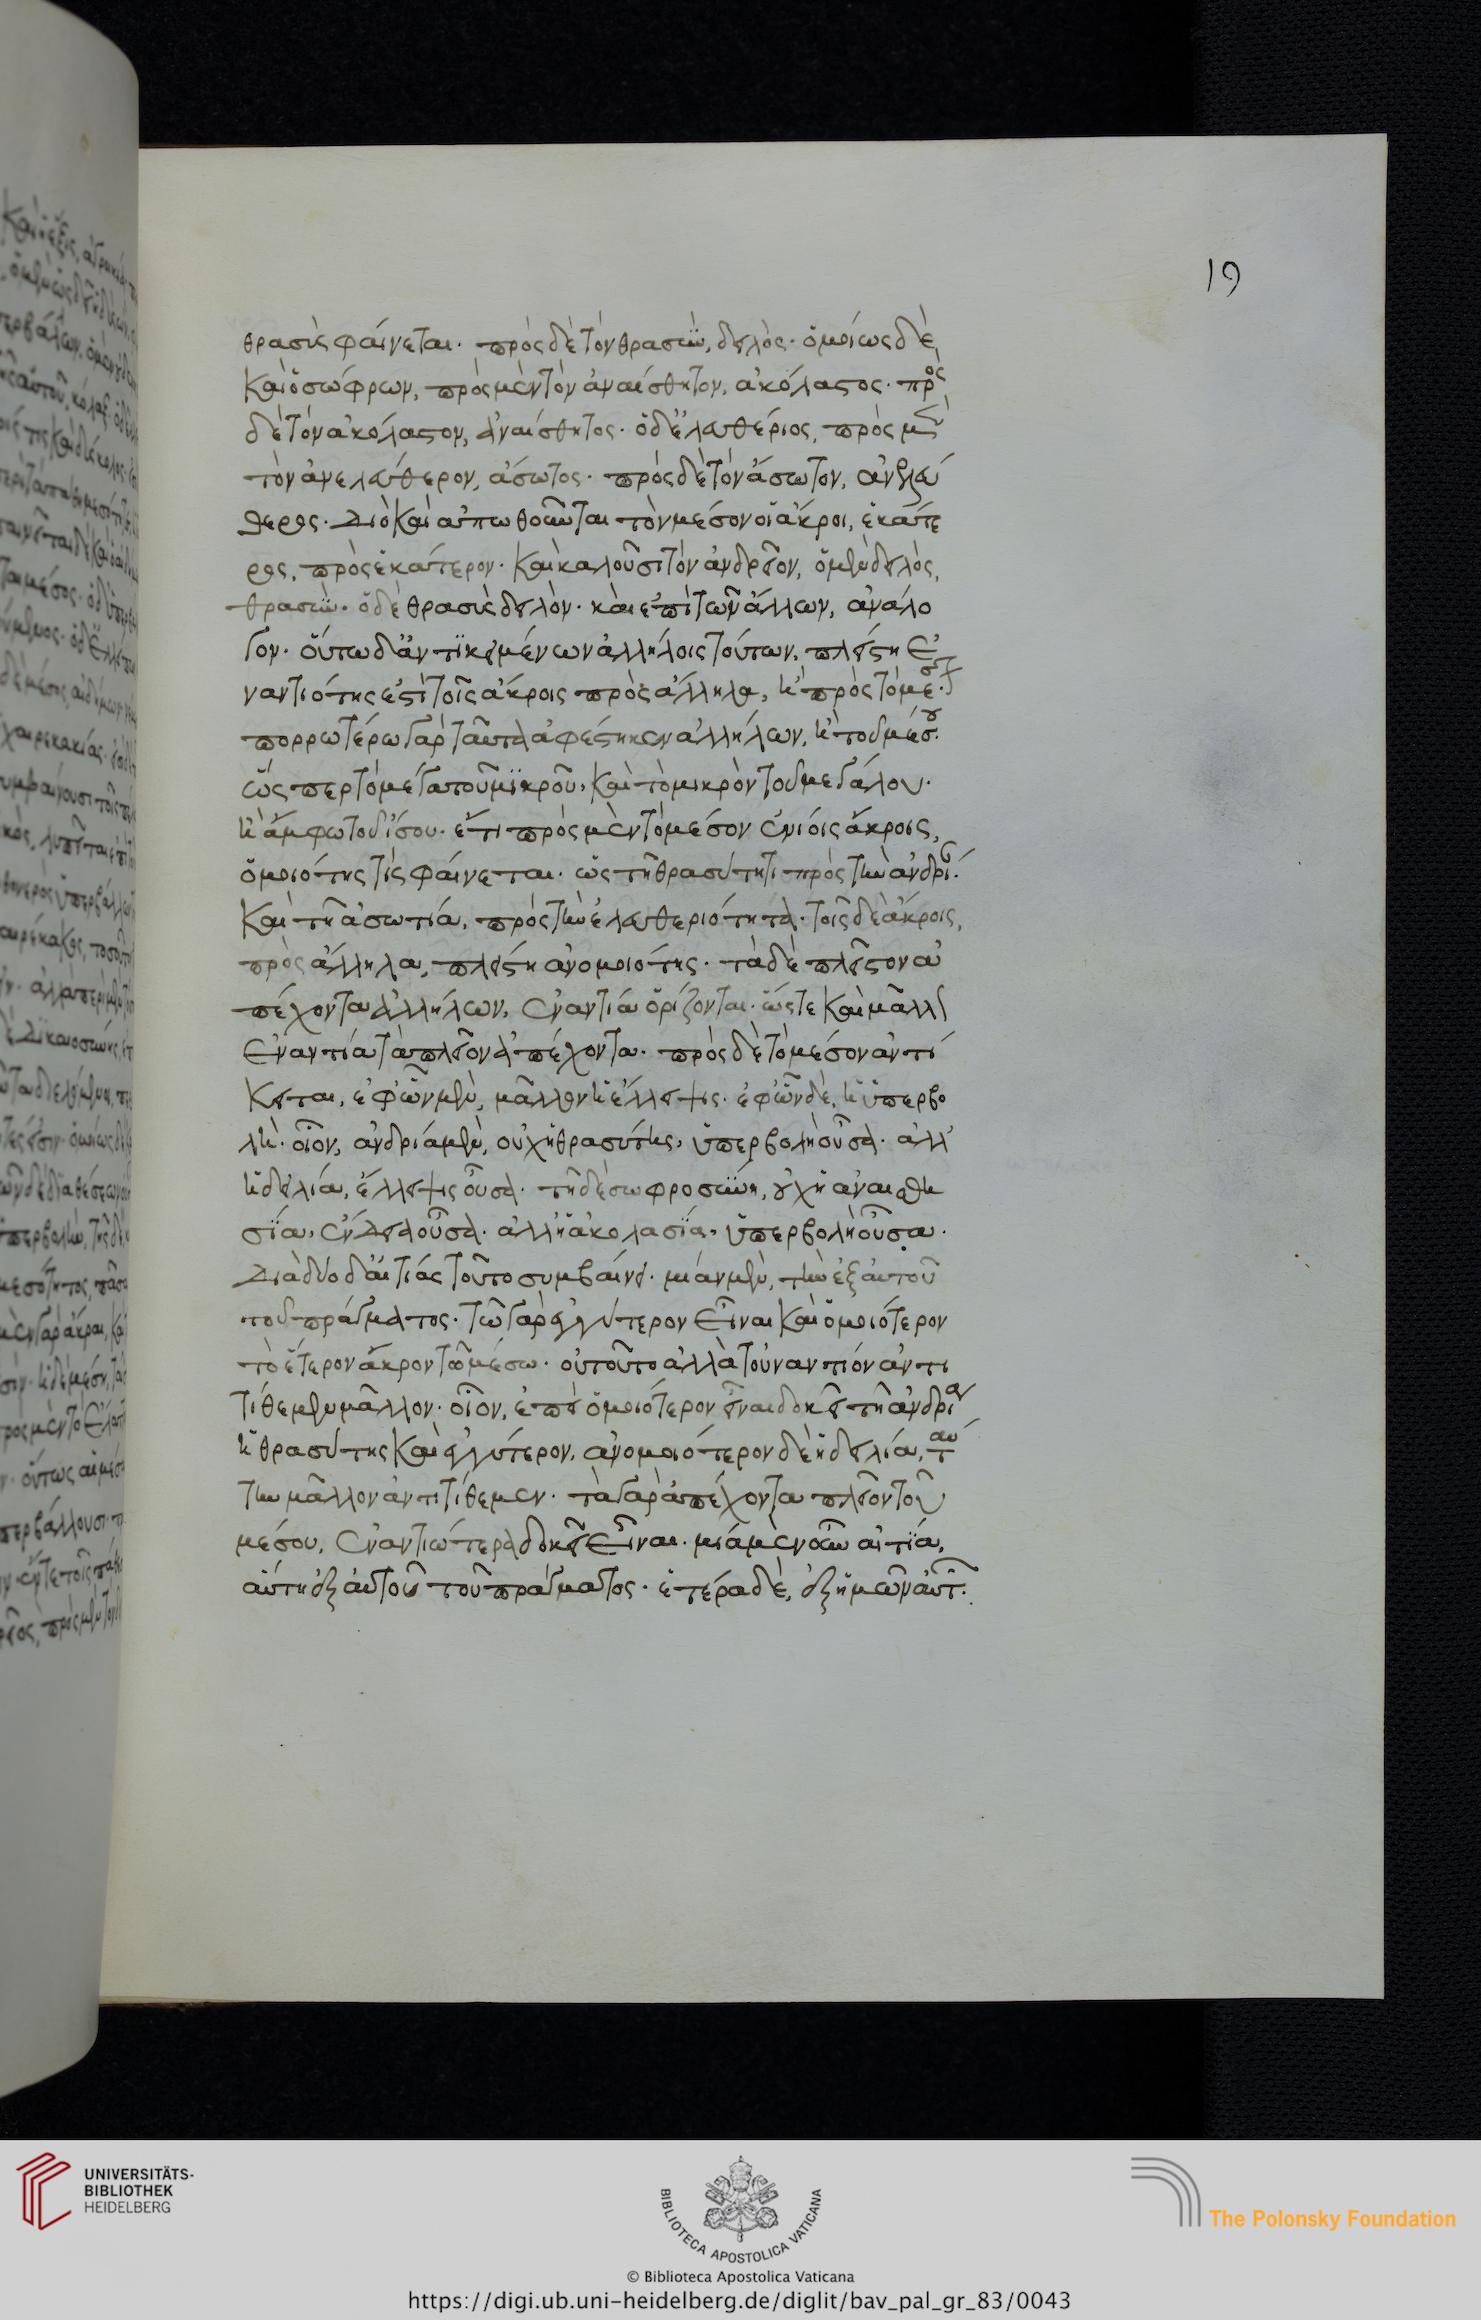 19
θρασὺς φαίνεται· πρὸς δὲ τὸν θρασὺν, δειλός· ὁμοίως δὲ
καὶ ὁ σώφρων, πρὸς μὲν τὸν ἀναίσθητον, ἀκόλαστος· πρὸς
δὲ τὸν ἀκόλαστον, ἀναίσθητος· ὁ δ' ἐλευθέριος, πρὸς μὲν
τὸν ἀνελεύθερον, ἄσωτος· πρὸς δὲ τὸν ἄσωτον, ἀνελεύ
θερος· Διὸ καὶ ἀπωθοῦνται τὸν μέσον οἱ ἄκροι, ἑκάτε
ρος, πρὸς ἑκάτερον· καὶ καλοῦσι τὸν ἀνδρεῖον, ὁ μὲν δειλός,
θρασύν· ὁ δὲ θρασὺς δειλὸν· καὶ ἐπὶ τῶν ἄλλων, ἀνάλο
γον· οὕτω δ' ἀντικειμένων ἀλλήλοις τούτων, πλείστη ἐ
ναντιότης ἐστὶ τοῖς ἄκροις πρὸς ἄλληλα, ἢ πρὸς τὸ μέσον·
πορρωτέρω γὰρ ταῦτα ἀφέστηκεν ἀλλήλων, ἢ τοῦ μέσου·
ὥσπερ τὸ μέγα τοῦ μικροῦ, καὶ τὸ μικρὸν τοῦ μεγάλου·
ἢ ἄμφω τοῦ ἴσου· ἔτι πρὸς μὲν τὸ μέσον ἐνίοις ἄκροις,
ὁμοιότης τὶς φαίνεται· ὡς τῇ θρασύτητι πρὸς τὴν ἀνδρίαν·
καὶ τῇ ἀσωτία, πρὸς τὴν ἐλευθεριότητα· τοῖς δὲ ἄκροις,
πρὸς ἄλληλα, πλείστη ἀνομοιότης· τὰ δὲ πλεῖστον ἀ
πέχοντα ἀλλήλων, ἐναντία ὁρίζονται· ὥστε καὶ μᾶλλον
ἐναντία τὰ πλεῖον ἀπέχοντα· πρὸς δὲ τὸ μέσον ἀντί
κειται, ἐφ' ὧν μὲν, μᾶλλον ἡ ἔλλειψις· ἐφ' ὧν δὲ, ἡ ὑπερβο
λή· οἷον, ἀνδρία μὲν, οὐχ ἡ θρασύτης, ὑπερβολὴ οὖσα· ἀλλ'
ἡ δειλία, ἔλλειψις οὖσα· τῇ δὲ σωφροσύνῃ, οὐχ ἡ ἀναισθη
σία, ἔνδεια οὖσα· ἀλλ' ἡ ἀκολασία, ὑπερβολὴ οὖσα·
Διὰ δύο δ' αἰτίας τοῦτο συμβαίνει· μίαν μὲν, τὴν ἐξ αὐτοῦ
τοῦ πράγματος· τῶ γὰρ ἐγγύτερον εἶναι καὶ ὁμοιότερον
τὸ ἕτερον ἄκρον τῶ μέσω· οὐ τοῦτο ἀλλὰ τοὐναντίον ἀντι
τίθεμεν μᾶλλον· οἷον, ἐπεὶ ὁμοιότερον εἶναι δοκεῖ τῇ ἀνδρία
ἡ θρασύτης καὶ ἐγγύτερον, ἀνομοιότερον δὲ ἡ δειλία, ταύ
την μᾶλλον ἀντιτίθεμεν· τὰ γὰρ ἀπέχοντα πλεῖον τοῦ
μέσου, ἐναντιώτερα δοκεῖ εἶναι· μία μὲν οὖν αἰτία,
αὕτη ἐξ αὐτοῦ τοῦ πράγματος· ἑτέρα δὲ, ἐξ ἡμῶν αὐτῶν·
UNIVERSITÄTS-
BIBLIOTHEK
HEIDELBERG
BIBLIOTECA APOSTOLICA VATICANA
The Polonsky Foundation
© Biblioteca Apostolica Vaticana
https://digi.ub.uni-heidelberg.de/diglit/bav_pal_gr_83/0043